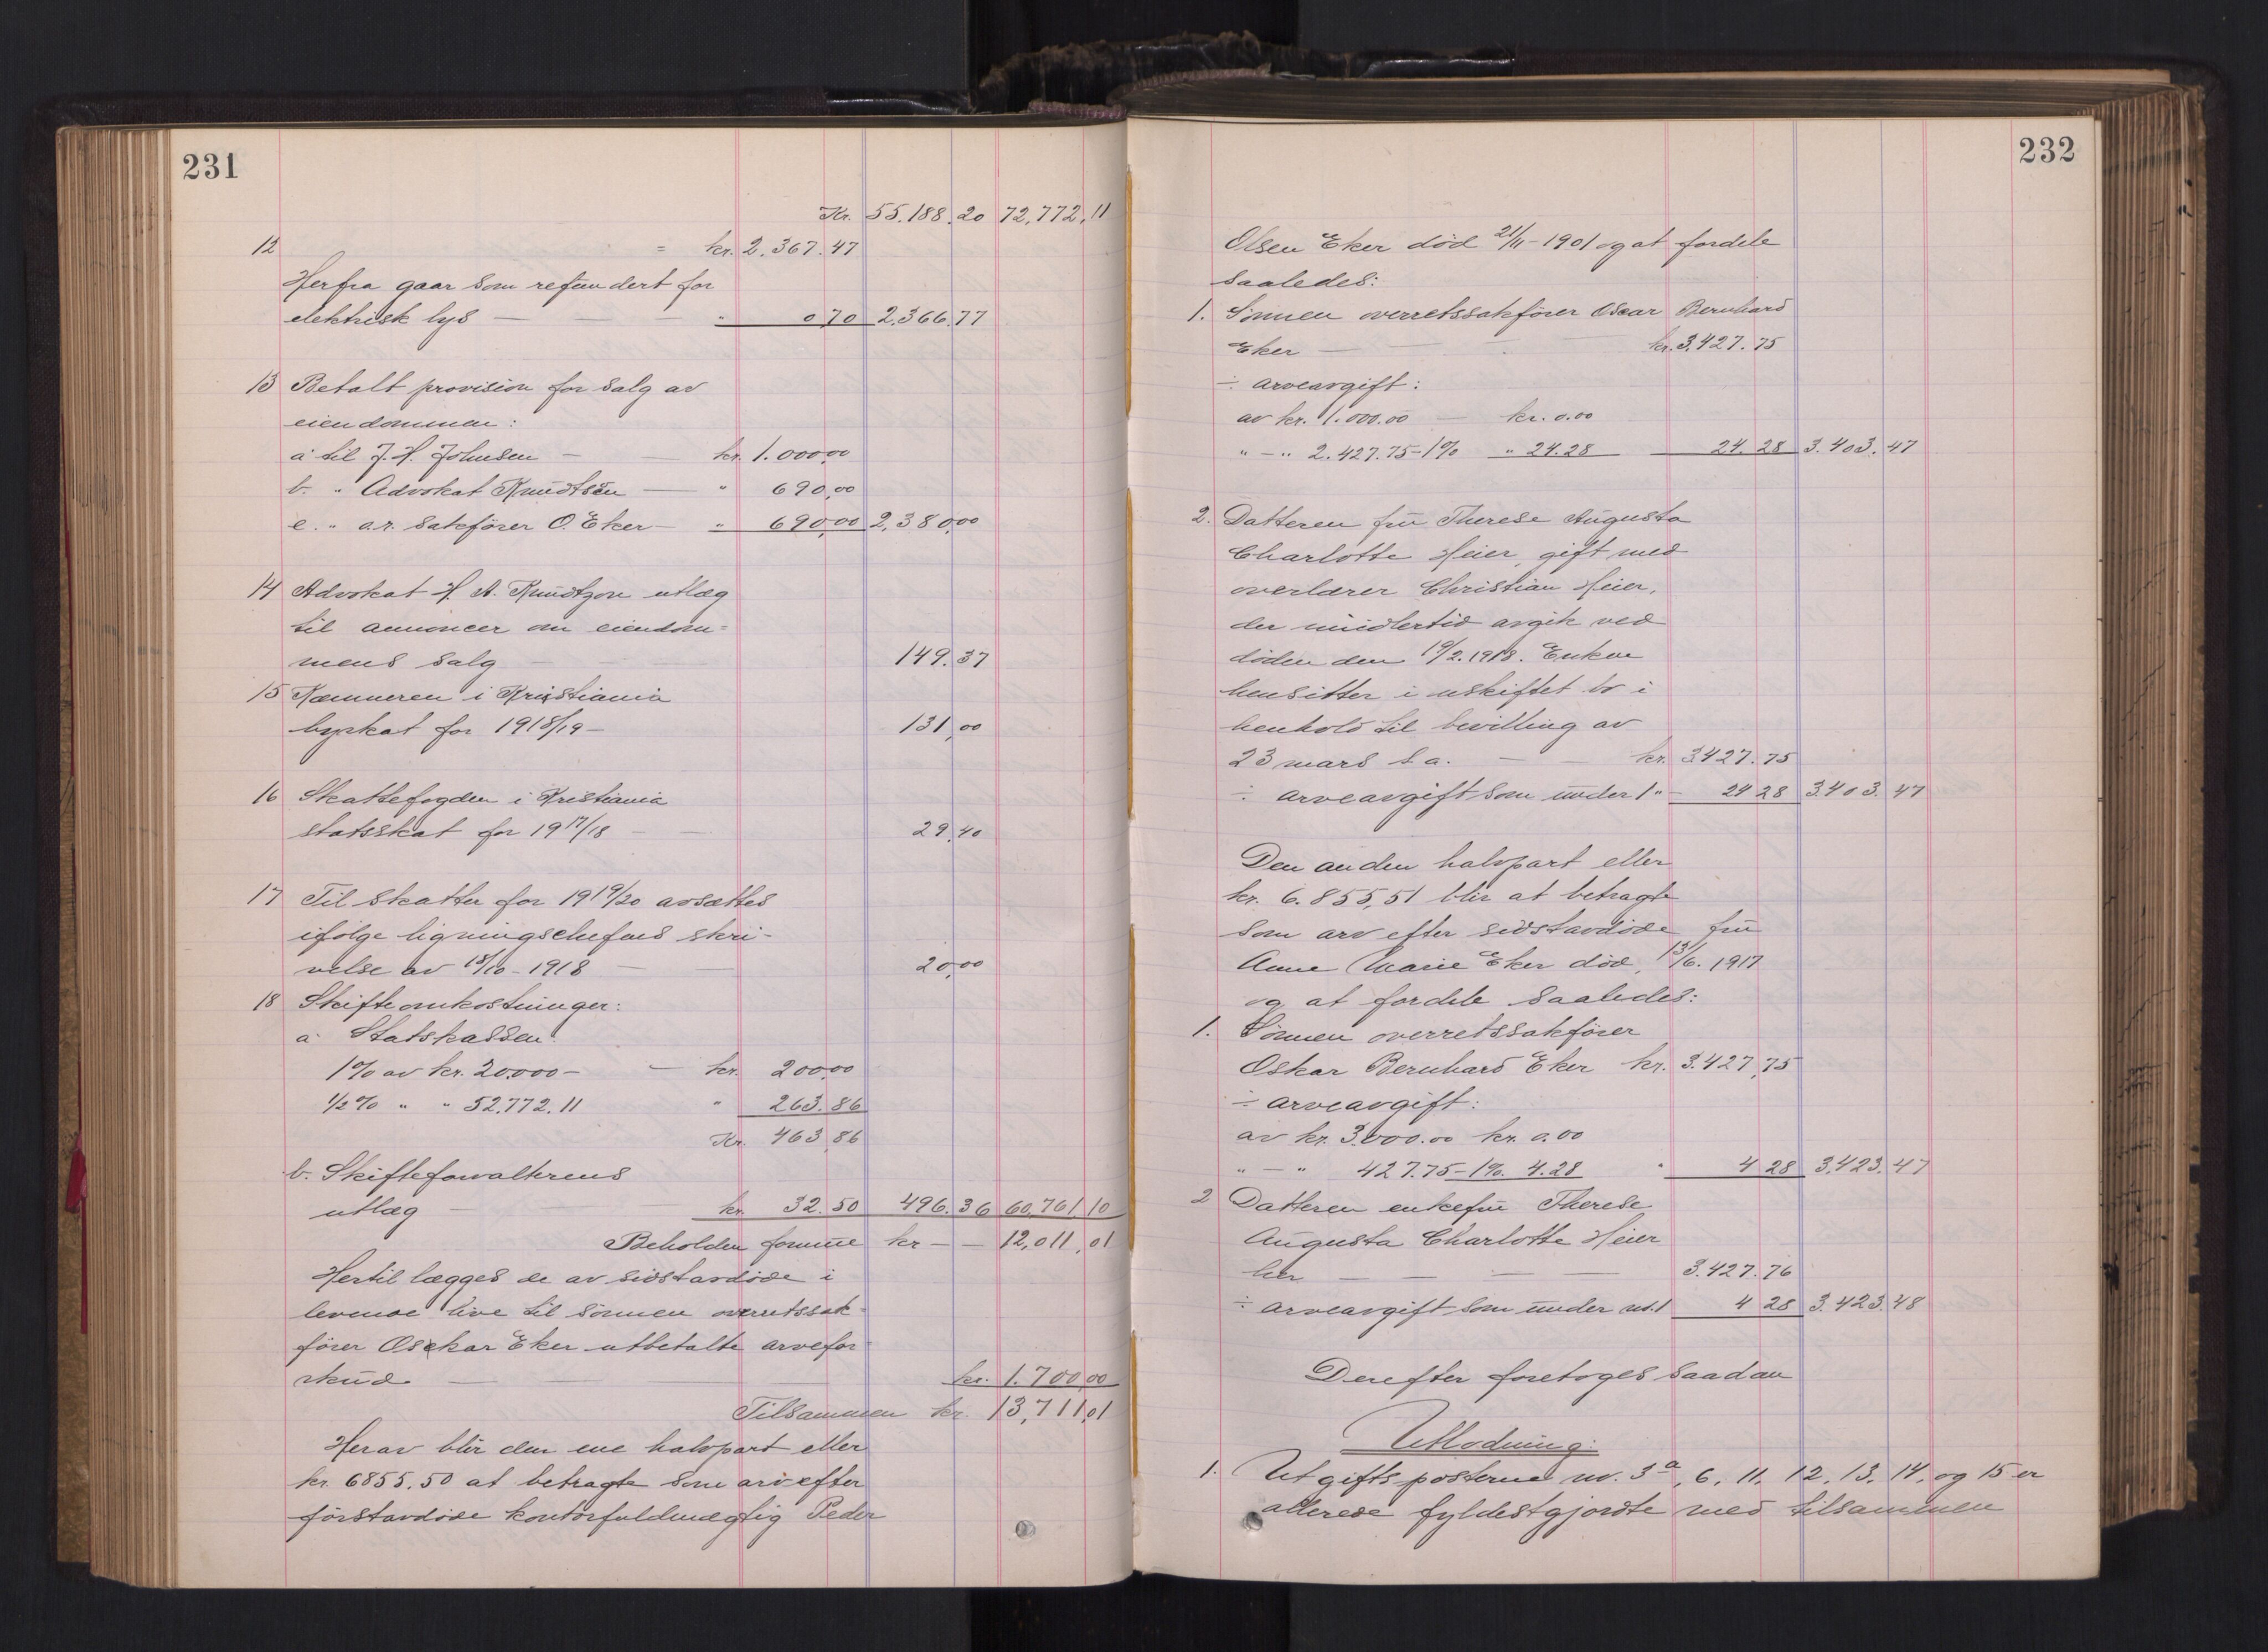 231
Kr. 55.188.20 72,772,11
12 = kr. 2.367.47
Herfra gaar som refundert for
elektrisk lys — — — " 0 70 2.366.77
13 Betalt provision for salg av
eiendommen:
a til J. H. Johnsen — — kr. 1.000,00
b. " Advokat Knudtsen — " 690,00
c. " o.r. sakfører O. Eker — " 690,00 2,380,00
14 Advokat H. A. Knudtzon utlæg
til annoncer om eiendom=
mens salg — — — 149.37
15 Kæmneren i Kristiania
byskat for 1918/19 — 131,00
16 Skattefogden i Kristiania
statsskat for 1917/18 — — 29,40
17 Til skatter for 1919/20 avsættes
ifølge ligningschefens skri-
velse av 18/10-1918 — — 20,00
18 Skifteomkostninger:
a Statskassen:
1% av kr. 20.000 — — kr. 200,00
1/2% " " 52.772.11 " 263.86
Kr. 463,86
b. Skifteforvalterens
utlæg — — kr. 32.50 496.36 60,761,10
Beholden formue kr — — 12,011,01
Hertil lægges de av sidstavdøde i
levende live til sønnen overretssak=
fører Osckar Eker utbetalte arvefor=
skud — — — kr. 1.700,00
Tilsammen kr. 13,711,01
Herav blir den ene halvpart eller
kr 6855.50 at betragte som arv efter
førstavdøde kontorfuldmægtig Peder
232
Olsen Eker død 21/11-1901 og at fordele
saaledes:
1. Sønnen overretssakfører Oscar Bernhard
Eker — — kr. 3,427.75
÷ arveavgift:
av kr. 1.000.00 — kr. 0.00
" — " 2.427.75 - 1% " 24.28 — 24.28 3.403.47
2. Datteren fru Therese Augusta
Charlotte Heier, gift med
overlærer Christian Heier,
der imidlertid avgik ved
døden den 19/2.1918. Enken
hensitter i uskiftet bo i
henhold til bevilling av
23 mars s.a. — — kr. 3427.75
÷ arveavgift som under 1 " — 24 28 3.403.47
Den anden halvpart eller
kr. 6.855,51 blir at betragte
som arv efter sidstavdøde fru
Anne Marie Eker død, 13/6.1917
og at fordele saaledes:
1. Sønnen overretssakfører
Oskar Bernhard Eker kr. 3.427,75
÷ arveavgift:
av kr. 3.000.00 kr. 0.00
" — " 427.75 - 1% 4.28 " 4 28 3.423.47
2 Datteren enkefru Therese
Augusta Charlotte Heier
her — — — — 3.427.76
÷ arveavgift som under no. 1 4 28 3.423.48
Derefter foretoges saadan
Utlodning:
1. Utgiftsposterne nr. 3a, 6, 11, 12, 13, 14, og 15 er
allerede fyldestgjordte med tilsammen